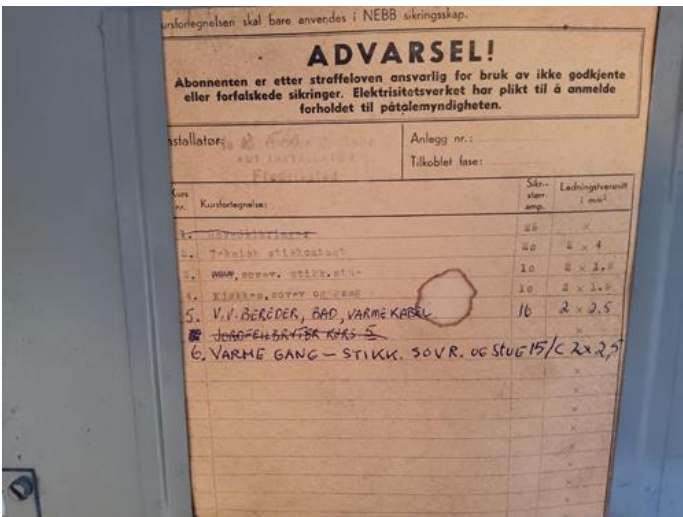 ursfortegnelsen skal bare anvendes i NEBB sikringsskap.
ADVARSEL!
Abonnenten er etter straffeloven ansvarlig for bruk av ikke godkjente
eller forfalskede sikringer. Elektrisitetsverket har plikt til å anmelde
forholdet til påtalemyndigheten.
nstallatør:
AUT INSTALLATØR
Fredrikstad
Anlegg nr.:
Tilkoblet fase:
Kurs nr. Kursfortegnelse: Sikr.- størr. amp. Ledningstverrsnitt i mm²
1. Hovedsikringer ×
2. Teknisk stikkontakt 20 2 × 4
3. sovev. stikk.stue 10 2 × 1.5
4. Kjøkken, sovev og gang 10 2 × 1.5
5. V.V. BEREDER, BAD, VARMEKABEL 16 2 × 2.5
JORDFEILBRYTER KURS 5 ×
6. VARME GANG – STIKK. SOVR. OG STUE 15/C 2 x 2,5